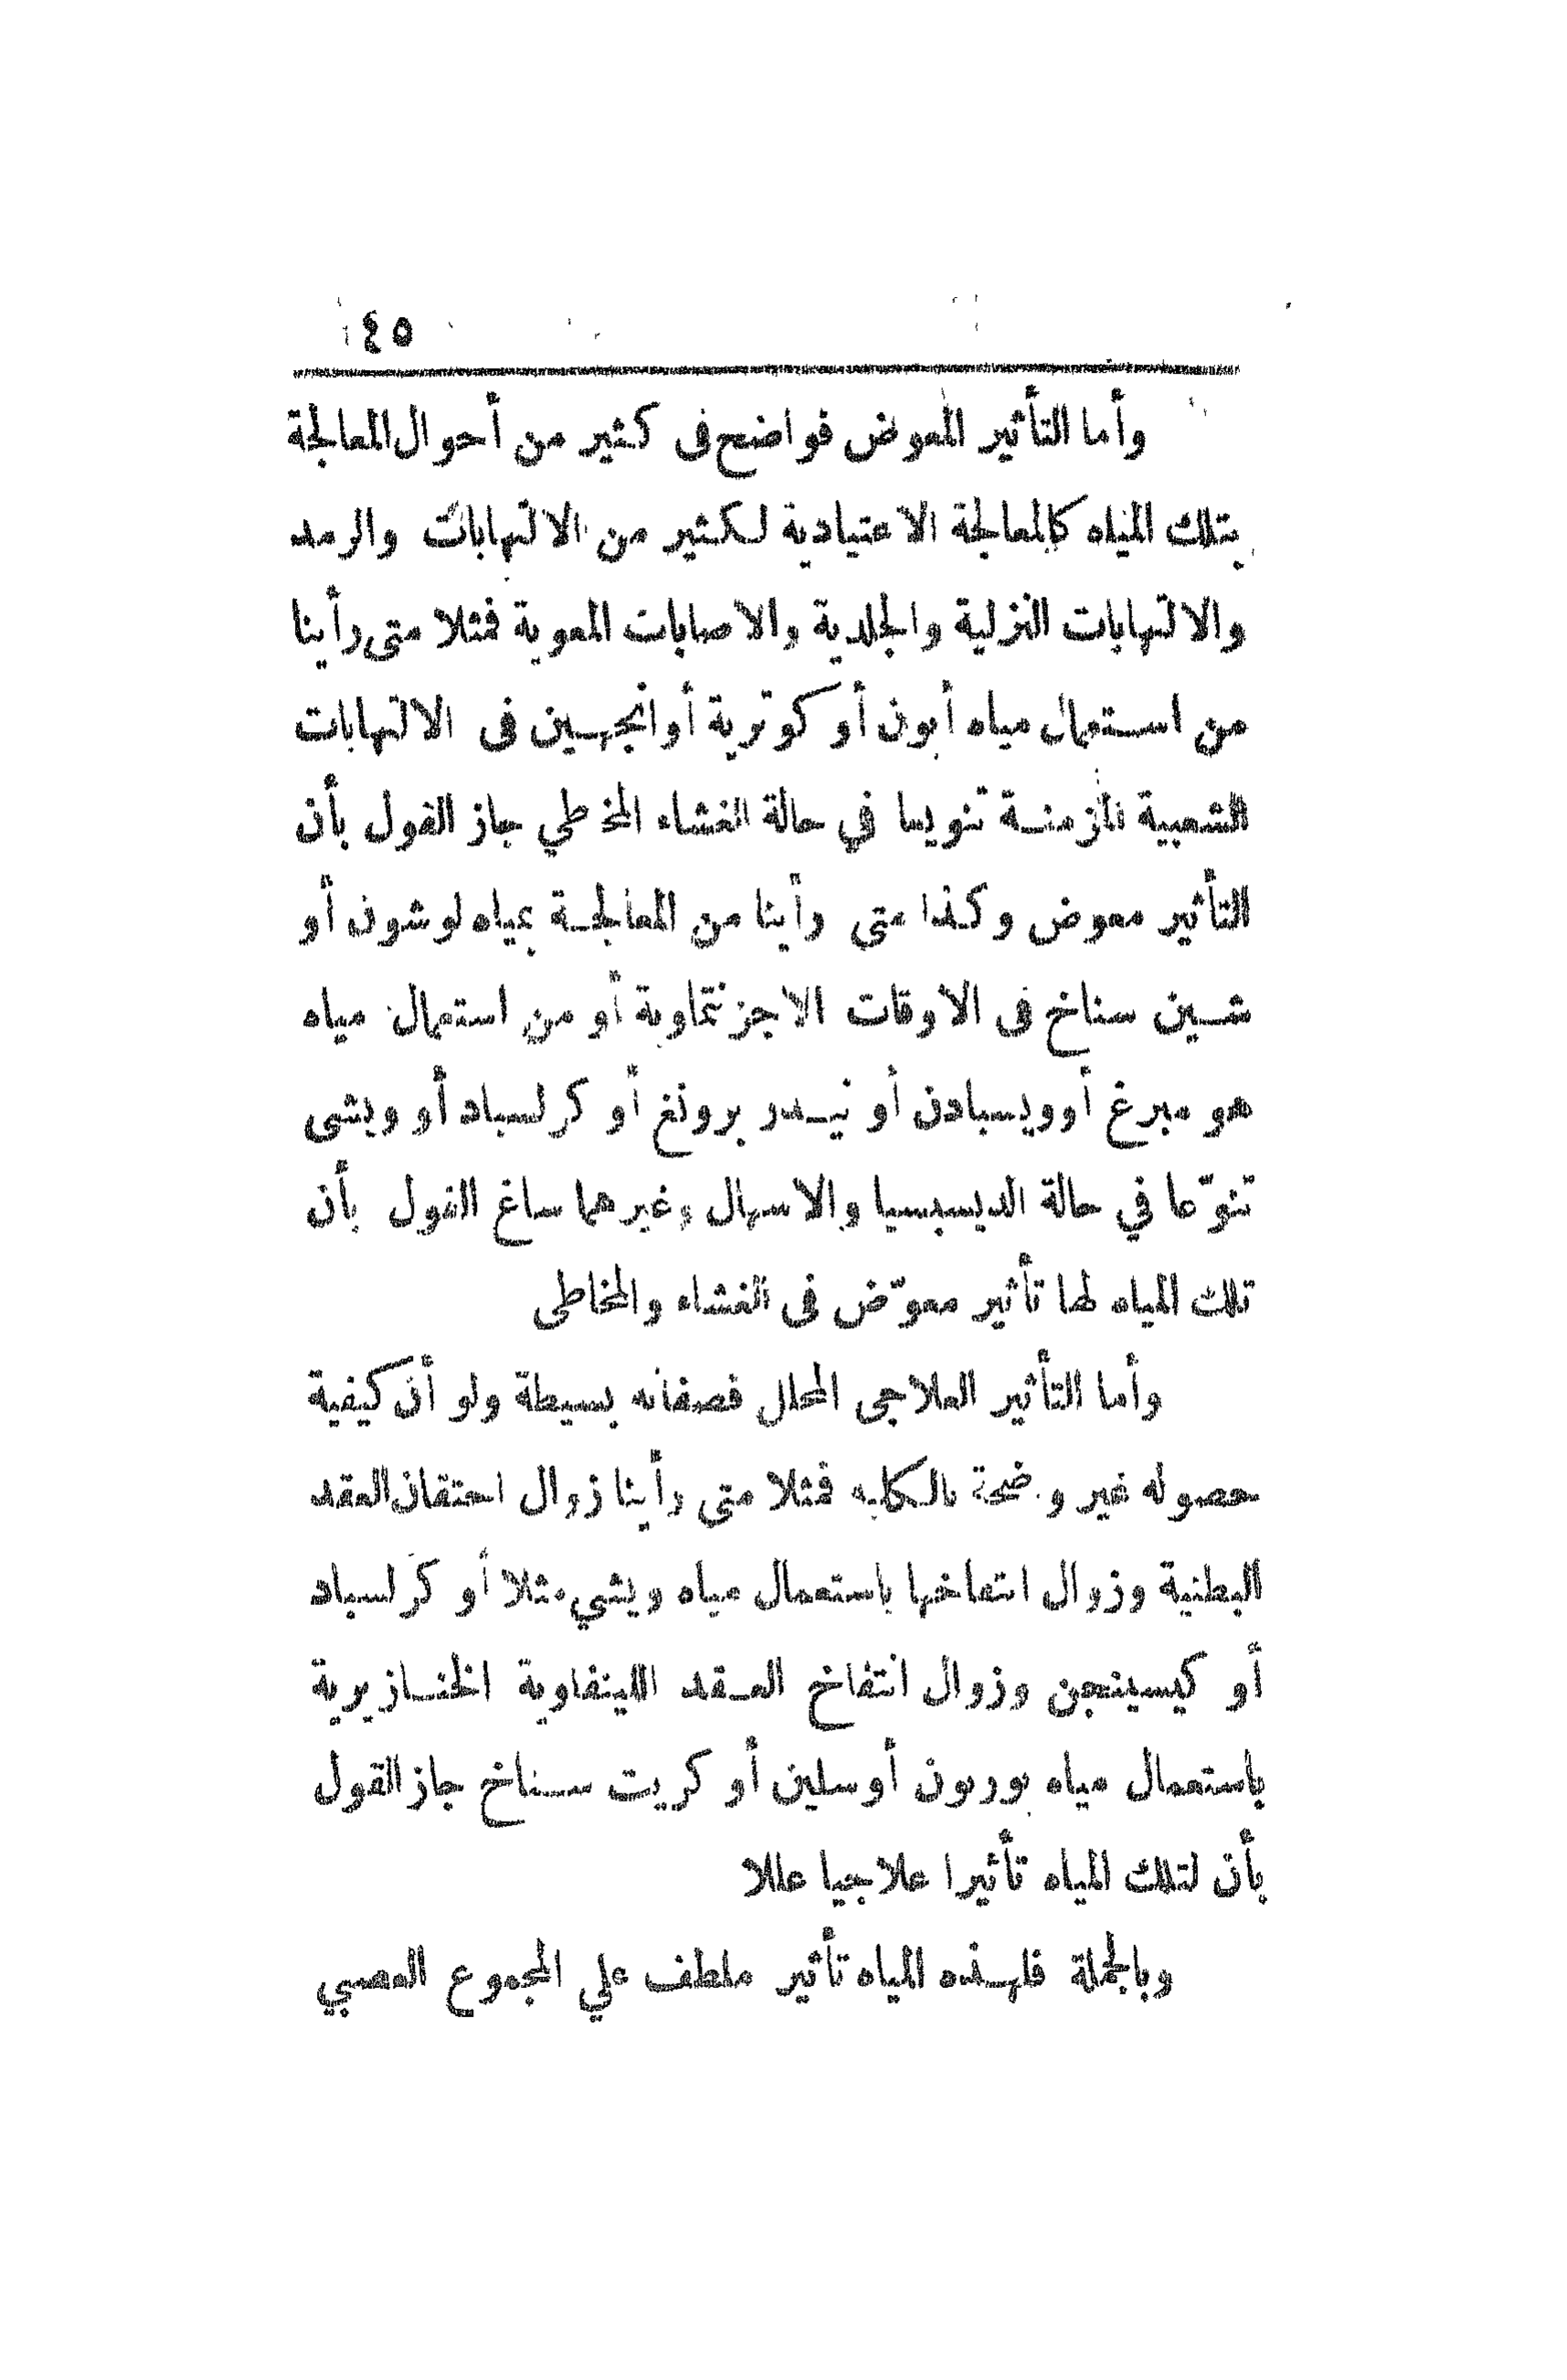 ٤٥
وأما التأثير المعوض فواضح فى كثير من أحوال المعالجة
بتلك المياه كالمعالجة الاعتيادية لكثير من الالتهابات والرمد
والالتهابات النزلية والجلدية والاصابات المعوية فمثلا متى رأينا
من استعمال مياه أبون أو كوترية أو انجهين فى الالتهابات
الشعبية المزمنة تنويعا في حالة الغشاء المخاطي جاز القول بأن
التأثير معوض وكذا متى رأينا من المعالجة بمياه لوشون أو
شين سناخ فى الاوقات الاجزنتماوية أو من استعمال مياه
هو مبرغ أو ويسبادن أو نيدر برونغ أو كرلسباد أو ويشى
تنوّعا في حالة الديسبسيا والاسهال وغيرهما ساغ القول بأن
تلك المياه لها تأثير معوّض فى الغشاء والمخاطى
وأما التأثير العلاجى المحلل فصفاته بسيطة ولو أن كيفية
حصوله غير وضحة بالكلية فمثلا متى رأينا زوال احتقان العقد
البطنية وزوال انتفاخها باستعمال مياه ويشي مثلا أو كرلسباد
أو كيسينجن وزوال انتفاخ العقد اللينفاوية الخنازيرية
باستعمال مياه بوربون أو سلين أو كريت سناخ جاز القول
بأن لتلك المياه تأثيرا علاجيا محللا
وبالجملة فلهذه المياه تأثير ملطف علي المجموع العصبي